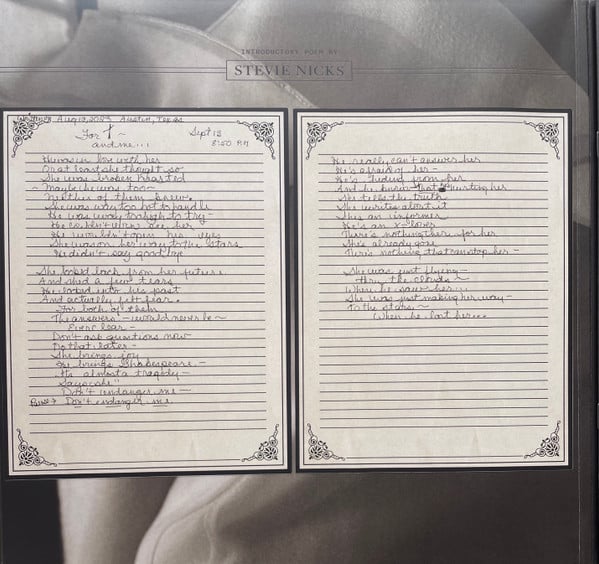 INTRODUCTORY POEM BY
STEVIE NICKS
Written Aug 13, 2023 Austin, Texas
For T ~
and me...
Sept 13
8:50 PM
He was in love with her
Or at least she thought so
She was broken hearted
~ Maybe he was too ~
Neither of them knew
She was way too hot to handle
He was way too high to try -
He couldn't even see her
He wouldn't open his eyes
She was on her way to the stars
He didn't say goodbye
She looked back from her future
And shed a few tears
He looked into his past
And actually felt fear.
For both of them
The answers - would never be ~
Ever clear -
Don't ask questions now
Do that later -
She brings joy
He brings Shakespeare -
It's almost a tragedy -
Says she "
Don't endanger me -
Don't endanger me
He really can't answer her
He's afraid of her -
He's hiding from her
And he knows that hurting her
She tells the truth
She writes about it
She's an informer
He's an x-lover
There's nothing there for her
She's already gone
There's nothing that can stop her -
She was just flying -
thru the clouds ~
When he saw her...
She was just making her way -
To the stars ~
When he lost her...